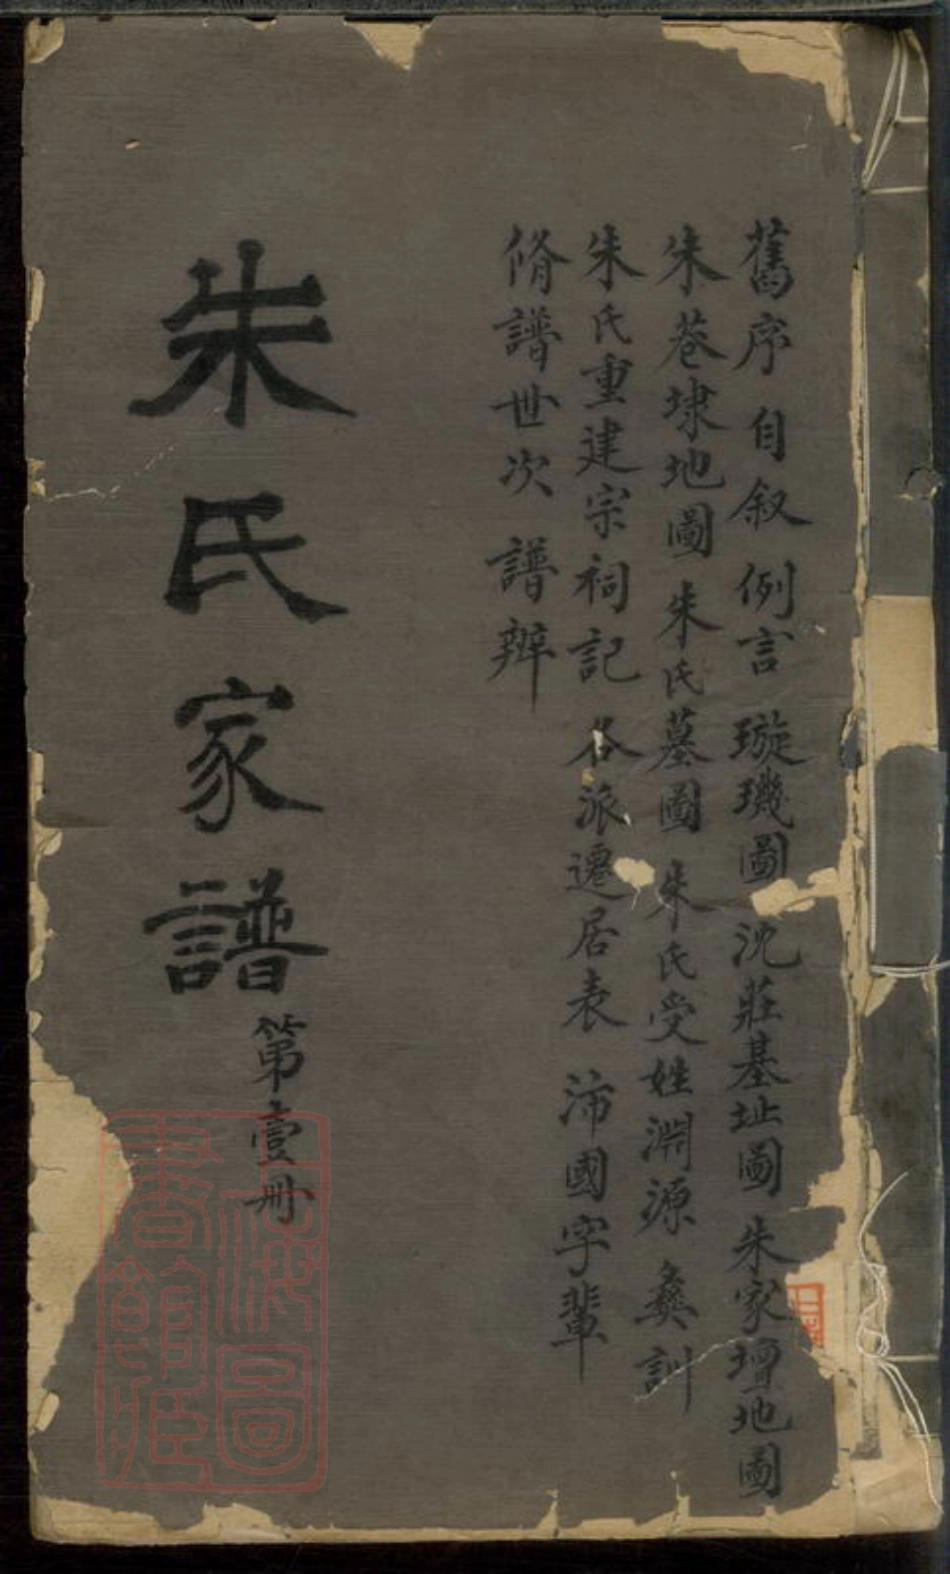 舊序 自叙 例言 璇璣圖 沈莊基址圖 朱家壇地圖
朱巷埭地圖 朱氏墓圖 朱氏受姓淵源 彝訓
朱氏重建宗祠記 各派遷居表 沛國字輩
脩譜世次 譜辨
朱氏家譜
第壹冊
上海圖
書館藏